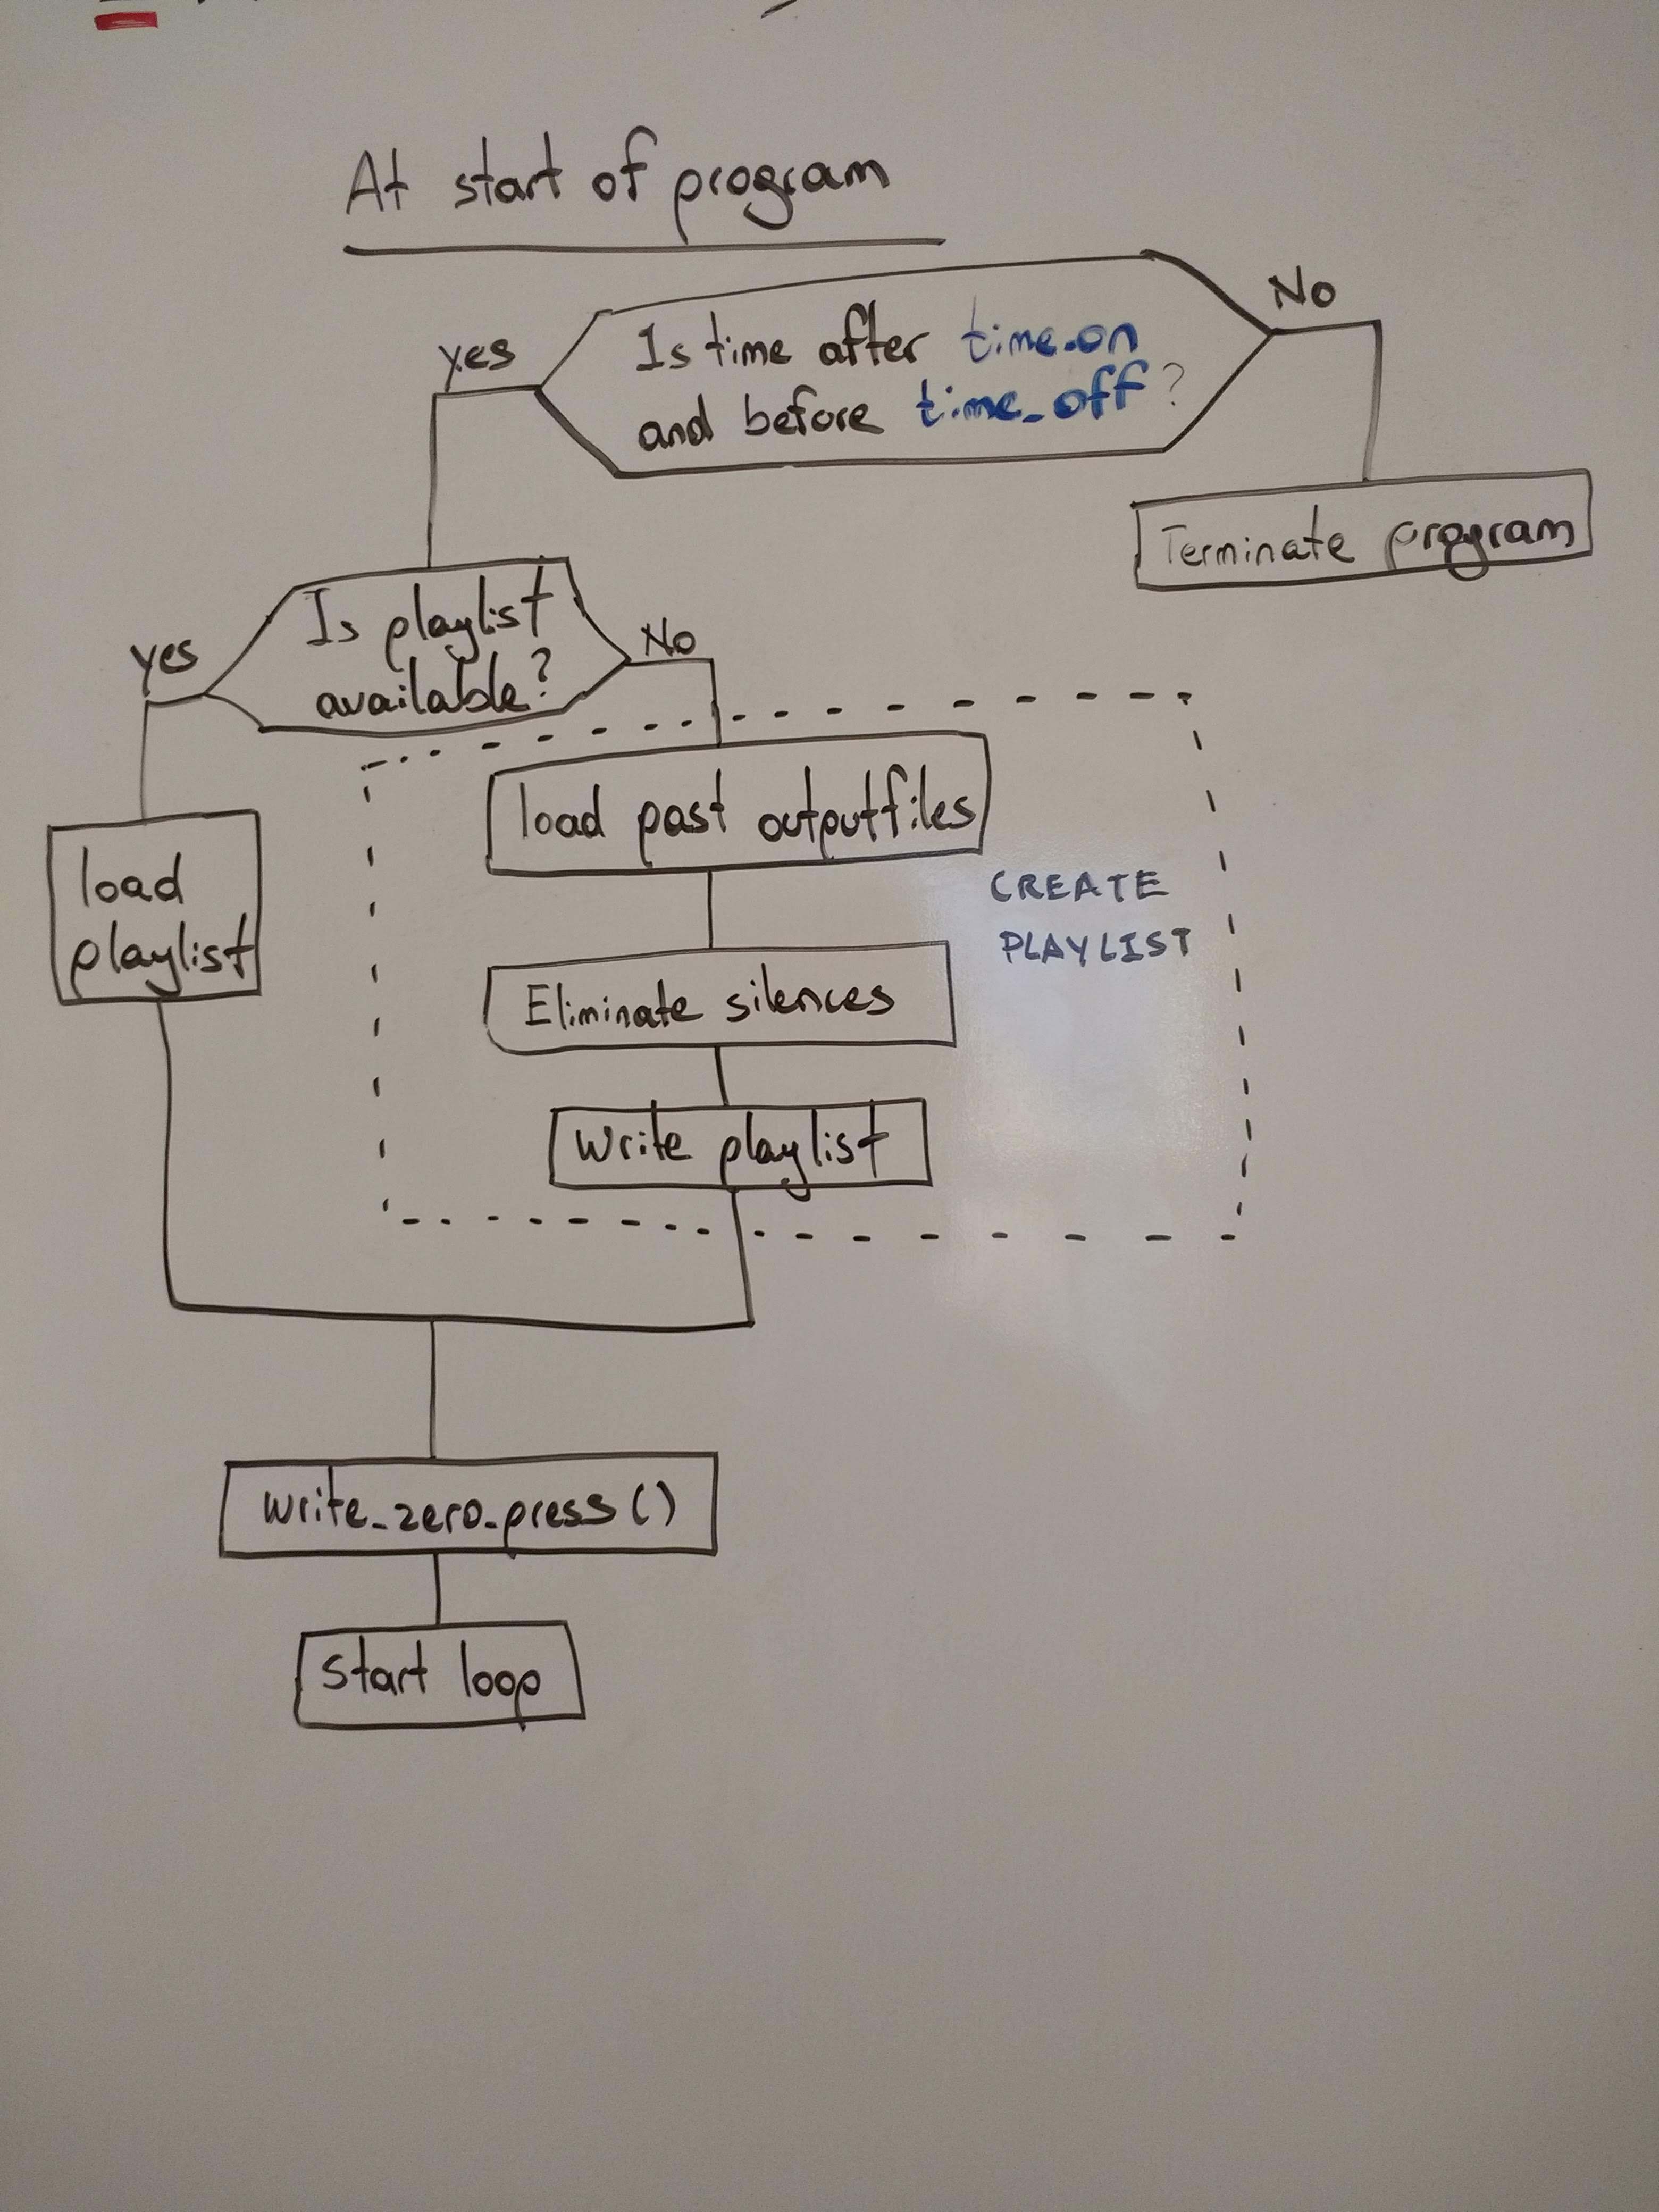 At start of program
Is time after time_on
and before time_off?
yes
No
Terminate program
Is playlist
available?
yes
No
load
playlist
load past outputfiles
CREATE
PLAYLIST
Eliminate silences
write playlist
write_zero_press()
start loop